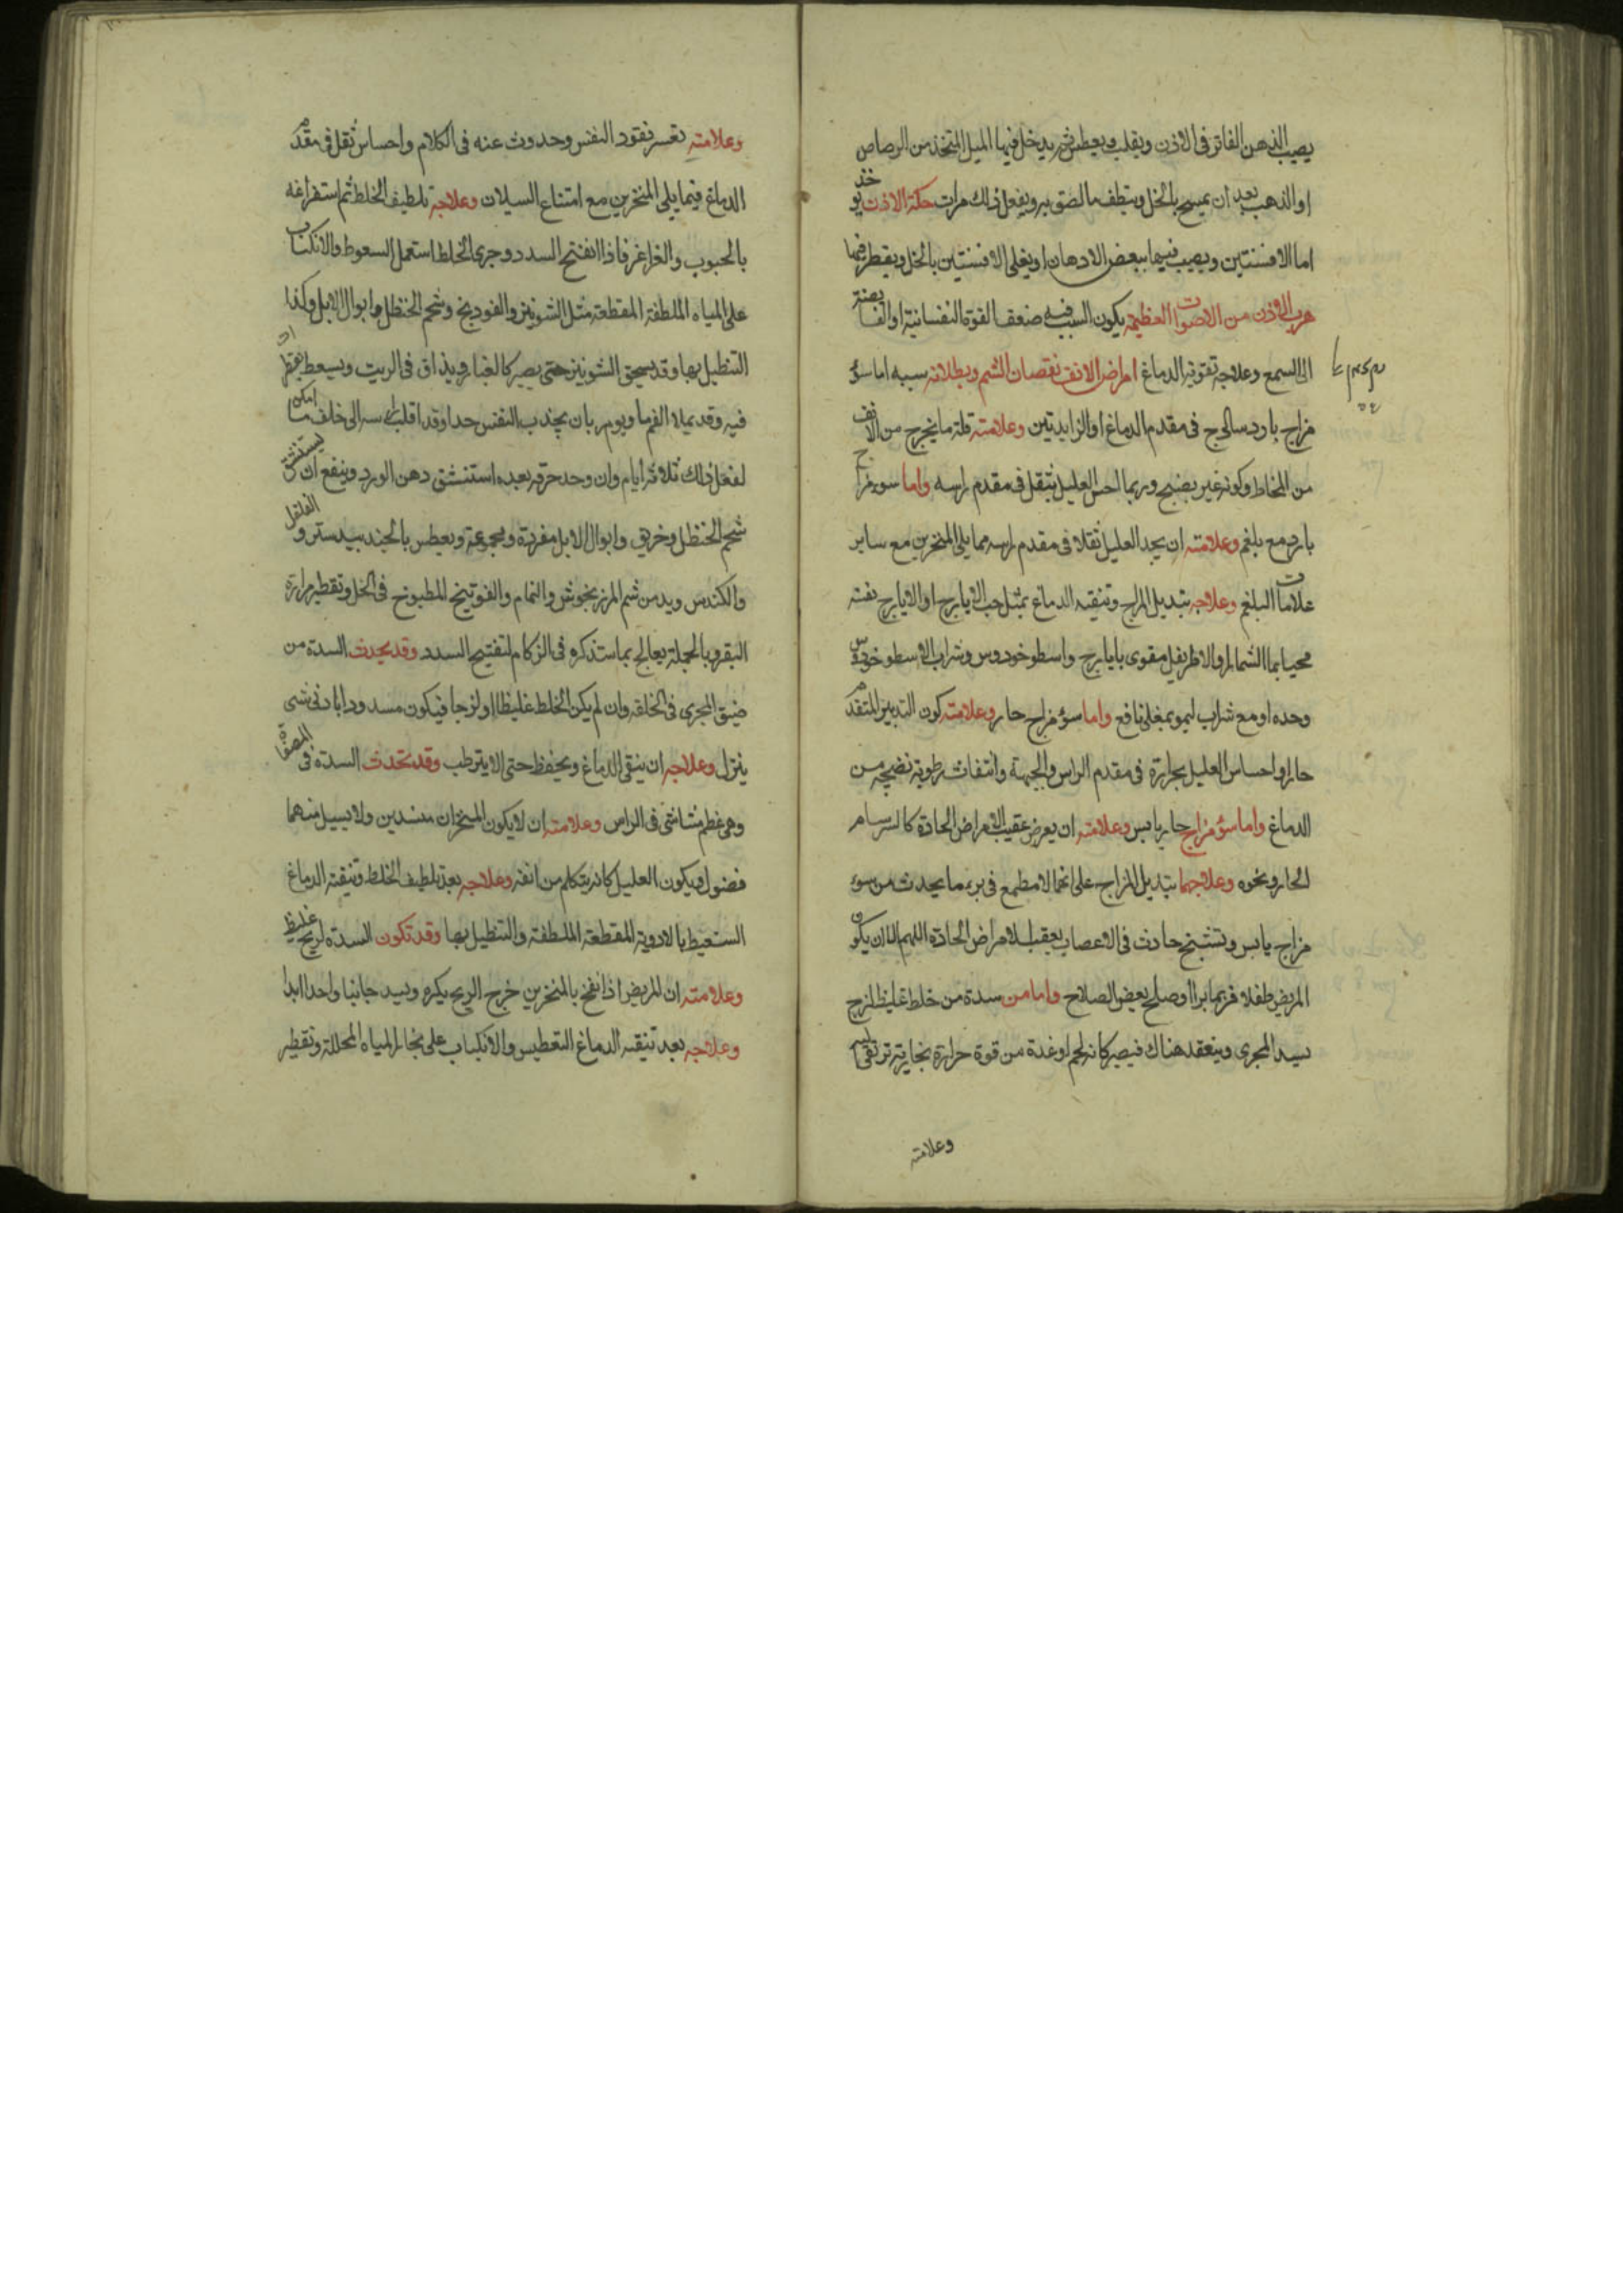 يصيب الدهن الفاتر فى الاذن ويقلب ويعطس ثم يدخل فيها الميل المتخذ من الرصاص
او الذهب بعد ان يمسح بالخل وينظف ما لصق به ويفعل ذلك مرات حكة الاذن يوخذ
اما الافسنتين ويصيب فيها ببعض الادهان او يغلى الافسنتين بالخل ويقطر فيها
هرب الاذن من الاصوات العظيمة يكون السبب فيه ضعف القوة النفسانية او الفايضة
الى السمع وعلاجه تقوية الدماغ امراض الانف نقصان الشم وبطلانه سببه اما سوء
مزاج بارد ساذج فى مقدم الدماغ او الزايدتين وعلامته قلة ما يخرج من الانف
من المخاط وكونه غير نضيج وربما احس العليل بثقل فى مقدم راسه واما سوء مزاج
بارد مع بلغم وعلامته ان يجد العليل ثقلا فى مقدم راسه مما يلى المنخرين مع ساير
علامات البلغم وعلاجه تبديل المزاج وتنقية الدماغ بمثل حب الايارج او الايارج نفسه
محببا بماء الشمار والاطريفل مقوى بايارج واسطوخودوس وشراب الاسطوخودوس
وحده او مع شراب ليمو بمغلى نافع واما سوء مزاج حار وعلامته كون التدبير المتقدم
حارا واحساس العليل بحرارة فى مقدم الراس والجبهة وانتفاث رطوبة نضيجه من
الدماغ واما سوء مزاج حار يابس وعلامته ان يعرض عقيب الامراض الحادة كالسرسام
الحار ونحوه وعلاجهما تبديل المزاج على انه لا مطمع فى برء ما يحدث من سوء
مزاج يابس وتشنج حادث فى الاعصاب بعقب الامراض الحادة اللهم الا ان يكون
المريض طفلا فربما برا او صلح بعض الصلاح واما من سدة من خلط غليظ لزج
يسد المجرى وينعقد هناك فيصير كانه لحم او غدة من قوة حرارة بخارية ترتقى اليه
وعلامته
وعلامته تعسر نفود النفس وحدوث غنه فى الكلام واحساس ثقل فى مقدم
الدماغ فيما يلى المنخرين مع امتناع السيلان وعلاجه تلطيف الخلط ثم استفراغه
بالحبوب والغراغر فاذا انفتح السدد وجرى الخلط استعمل السعوط والانكباب
على المياه الملطفة المقطعة مثل الشونيز والفودنج وشحم الحنظل وابوال الابل وكذا
التنطيل بها وقد يسحق الشونيز حتى يصير كالغبار ويذاق فى الزيت ويسعط بقطرات
فيه وقد يملا الفم ماء ويومر بان يجذب النفس جدا وقد اقلب راسه الى خلف ما امكن
لفعل ذلك ثلاثة ايام وان وجد حرقه بعده استنشق دهن الورد وينفع ان يستنشق
شحم الحنظل وخربق وابوال الابل مفردة ومجموعة ويعطس بالجندبيدستر والفلفل
والكندس ويدمن شم المرزنجوش والنمام والفوتنج المطبوخ فى الخل وتقطير مرارة
البقر وبالجملة يعالج بما سنذكره فى الزكام لتفتيح السدد وقد يحدث السدة من
ضيق المجرى فى الخلقه وان لم يكن الخلط غليظا او لزجا فيكون مسدودا بادنى شى
ينزل وعلاجه ان ينقى الدماغ ويحفظ حتى لا يترطب وقد تحدث السدة فى المصفاة
وهى عظم مشاشى فى الراس وعلامته ان لا يكون المنخران منسدين ولا يسيل منهما
فضول ويكون العليل كانه يتكلم من انفه وعلاجه بعد تلطيف الخلط وتنقية الدماغ
التسعيط بالادوية المقطعة الملطفة والتنطيل بها وقد تكون السدة لريح غليظ
وعلامته ان المريض اذا نفخ بالمنخرين خرج الريح بكره ويسد جانبا واحدا ابدا
وعلاجه بعد تنقية الدماغ التعطيس والانكباب على بخار المياه المحللة وتقطير